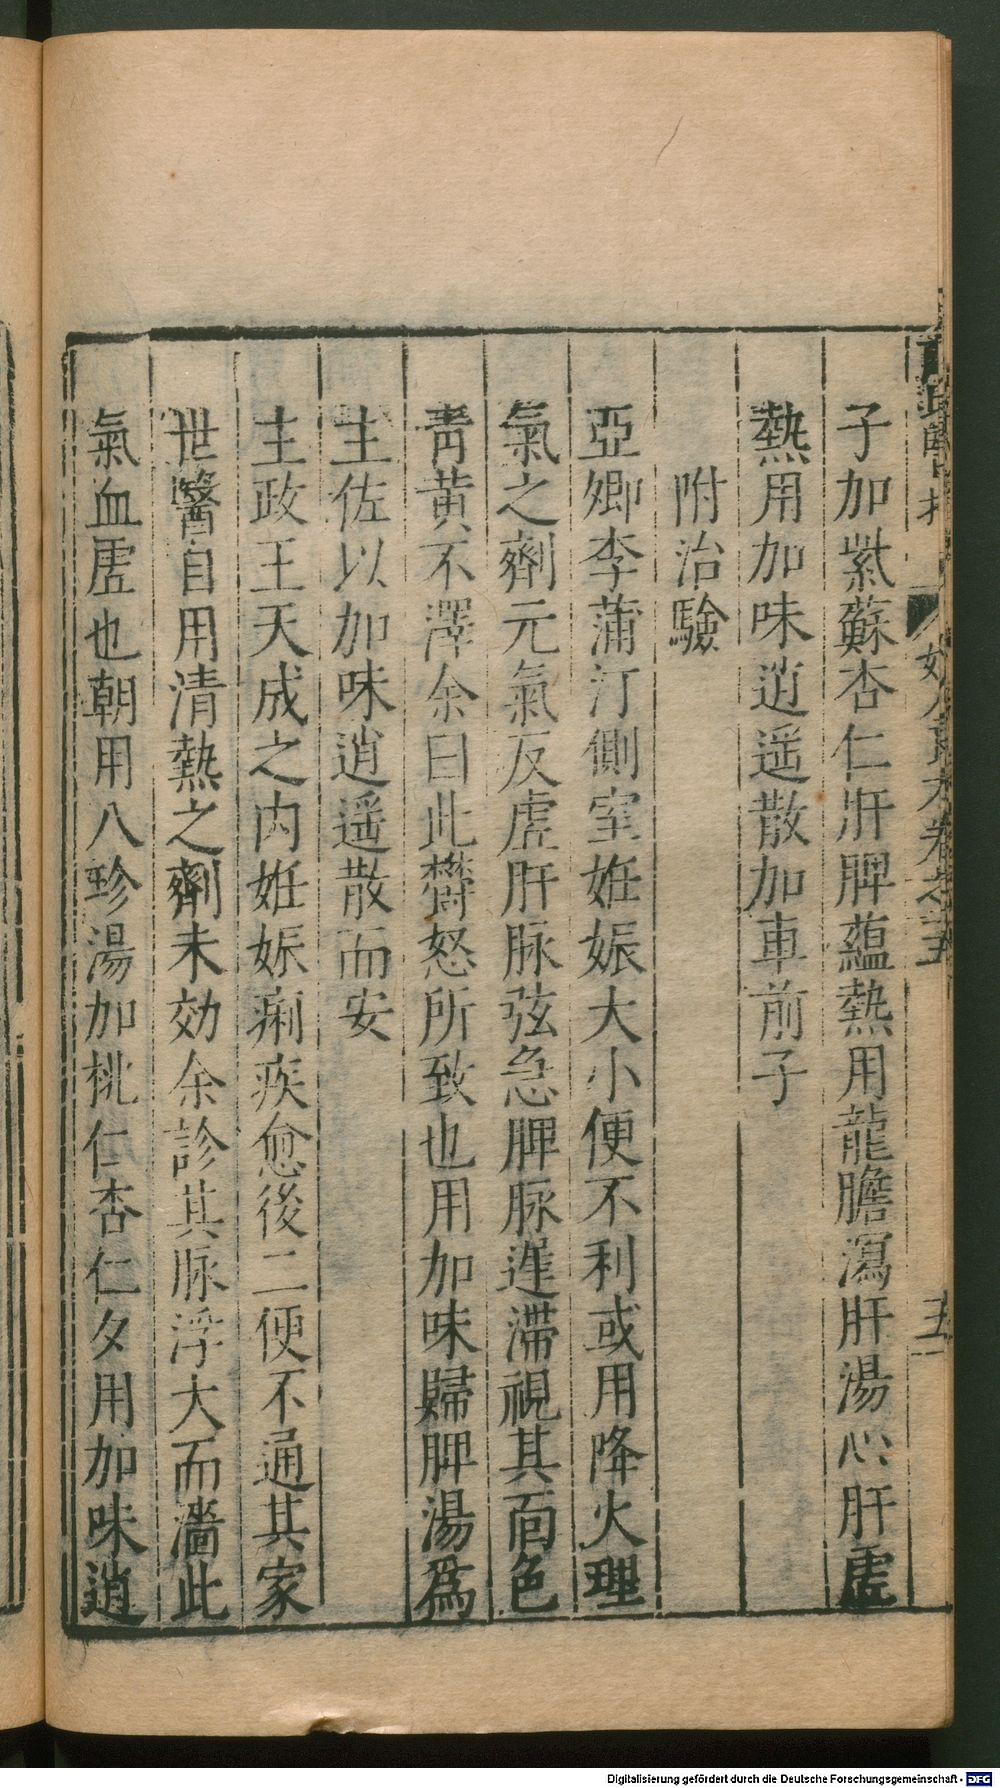 子加紫蘇杏仁肝脾蘊熱用龍膽瀉肝湯心肝虗
熱用加味逍遥散加車前子
附治驗
亞卿李蒲汀側室姙娠大小便不利或用降火理
氣之劑元氣反虗肝脉弦急脾脉遲滯視其面色
青黄不澤余曰此欝怒所致也用加味歸脾湯爲
主佐以加味逍遥散而安
主政王天成之内姙娠痢疾愈後二便不通其家
世醫自用清熱之劑未効余診其脉浮大而濇此
氣血虗也朝用八珍湯加桃仁杏仁夕用加味逍
五
Digitalisierung gefördert durch die Deutsche Forschungsgemeinschaft - DFG